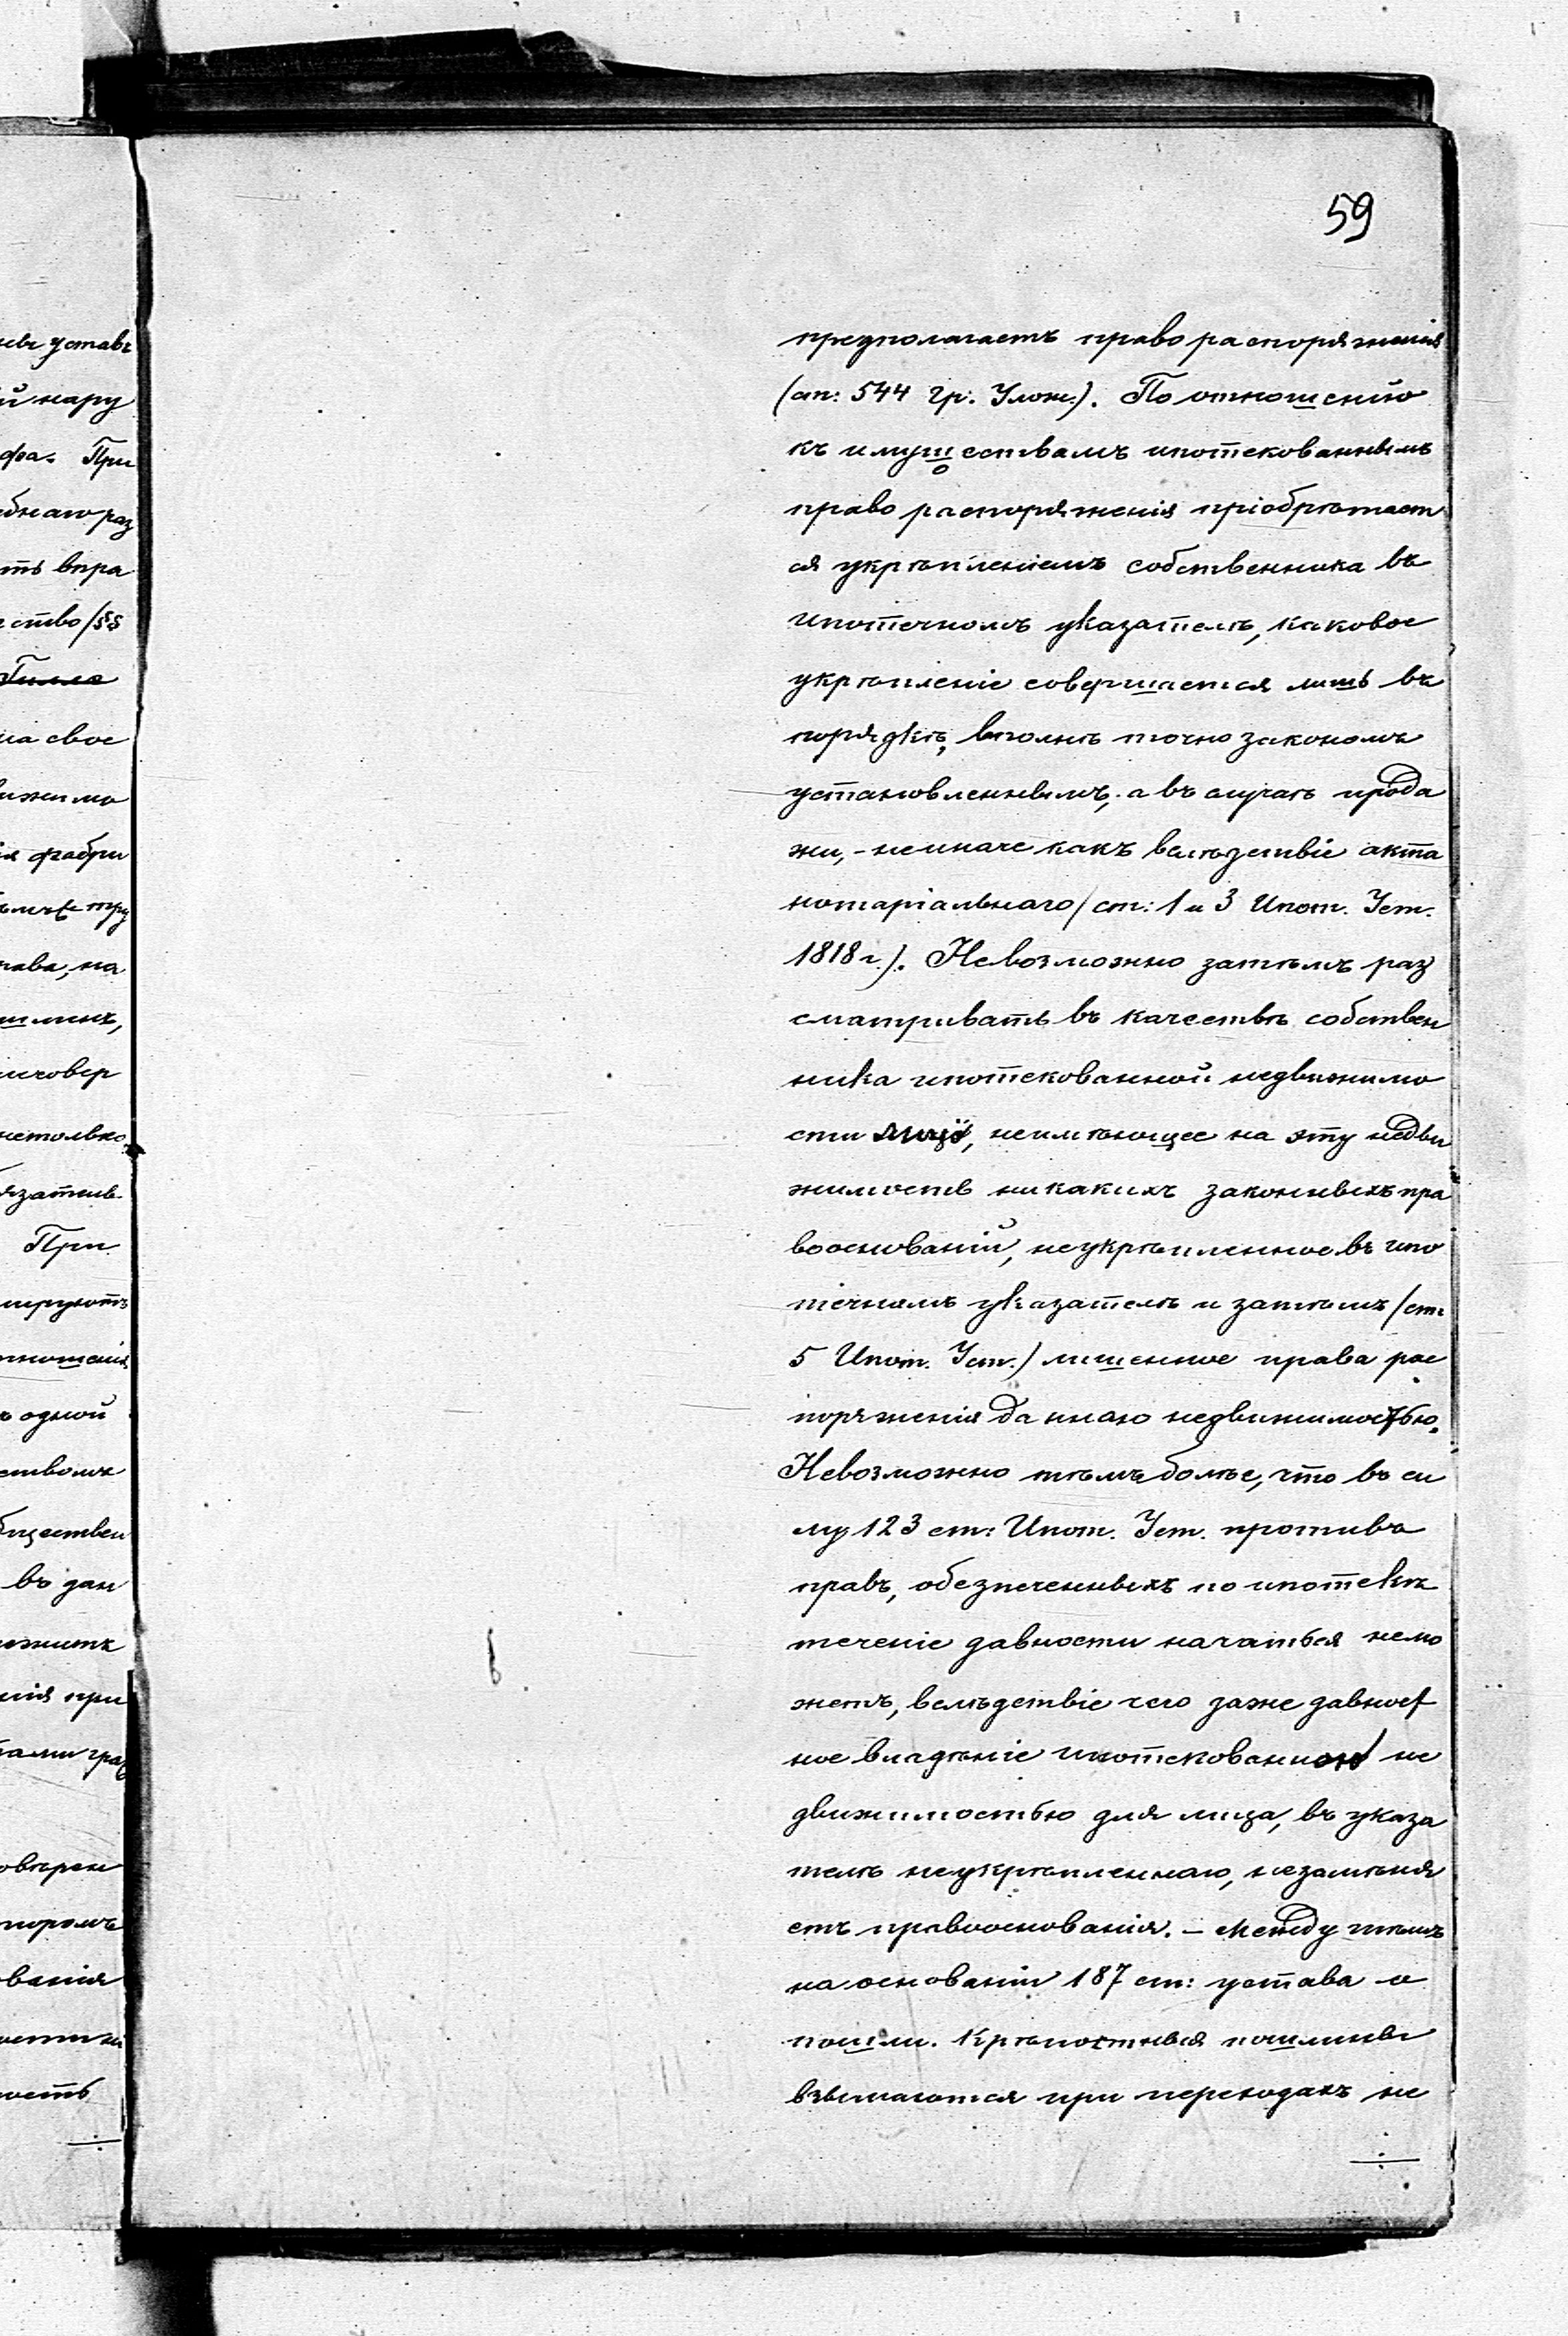 59
предполагаетъ право распоряженія
(ст: 544 Гр. Улож.). По отношенію
къ имуществамъ ипотекованнымъ
право распоряженія пріобрѣтает
ся укрѣпленіемъ собственника въ
ипотечномъ указателѣ, каковое
укрѣпленіе совершается лишь въ
порядкѣ, вполнѣ точно закономъ
установленнымъ, а въ случаѣ прода
жи, - неиначе какъ вслѣдствіе акта
нотаріальнаго (ст: 1 и 3 Ипот. Уст.
1818 г.). Невозможно затѣмъ раз
сматривать въ качествѣ собствен
ника ипотекованной недвижимо
сти лицо, неимѣющее на эту недви
жимость никакихъ законныхъ пра
вооснованій, неукрѣпленное въ ипо
течномъ указателѣ и затѣмъ (ст:
5 Ипот. Уст.) лишенное права рас
поряженія данною недвижимостью.
Невозможно тѣмъ болѣе, что въ си
лу 123 ст: Ипот. Уст. противъ
правъ, обезпеченныхъ по ипотекѣ
теченіе давности начаться немо
жетъ, вслѣдствіе чего даже давност
ное владѣніе ипотекованной не
движимостью для лица, въ указа
телѣ неукрѣпленнаго, незамѣня
етъ правооснованія. - Между тѣмъ
на основаніи 187 ст: устава о
пошли. Крѣпостныя пошлины
взымаются при переходахъ не
ÿ уставъ
й нару
фа. При
бнаго раз
ть впра
ство (§§
на свое
вижимо
ія фабри
рава, на
шлинъ,
нетолько
язатель
При
ируютъ
тношенія
ъ одной
ствомъ
бществен
въ дан
ожитъ
нія при
ами граж
овѣрен
торомъ
ованія
ность